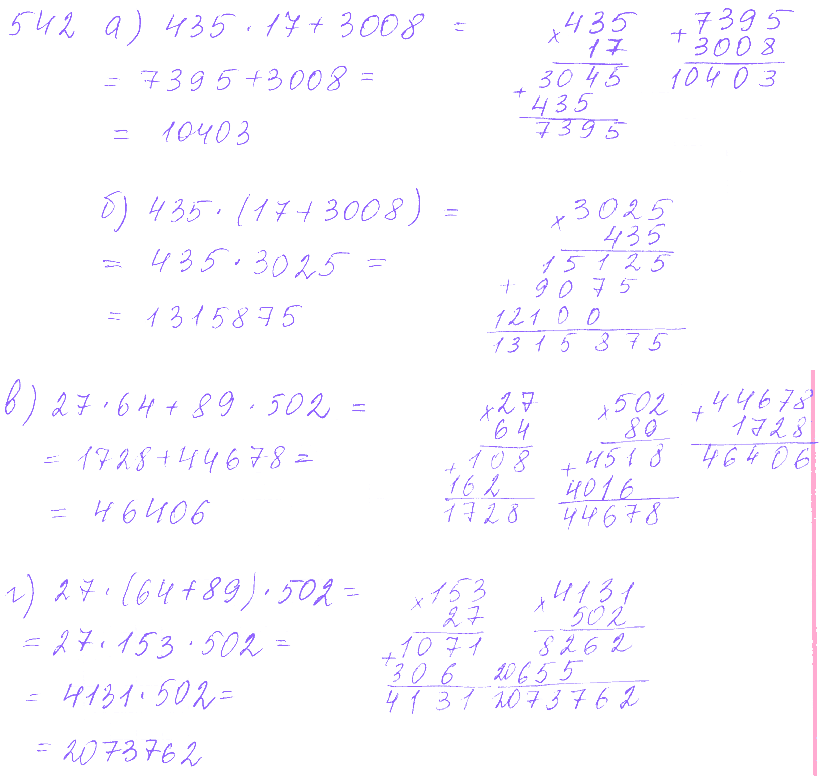 542 а) 435 · 17 + 3008 =
= 7395 + 3008 =
= 10403
× 435
17
3045
+ 435
7395
+ 7395
3008
10403
б) 435 · (17 + 3008) =
= 435 · 3025 =
= 1315875
× 3025
435
15125
+ 9075
12100
1315875
в) 27 · 64 + 89 · 502 =
= 1728 + 44678 =
= 46406
× 27
64
+ 108
162
1728
× 502
89
+ 4518
4016
44678
+ 44678
1728
46406
г) 27 · (64 + 89) · 502 =
= 27 · 153 · 502 =
= 4131 · 502 =
= 2073762
× 153
27
+ 1071
306
4131
× 4131
502
8262
20655
2073762